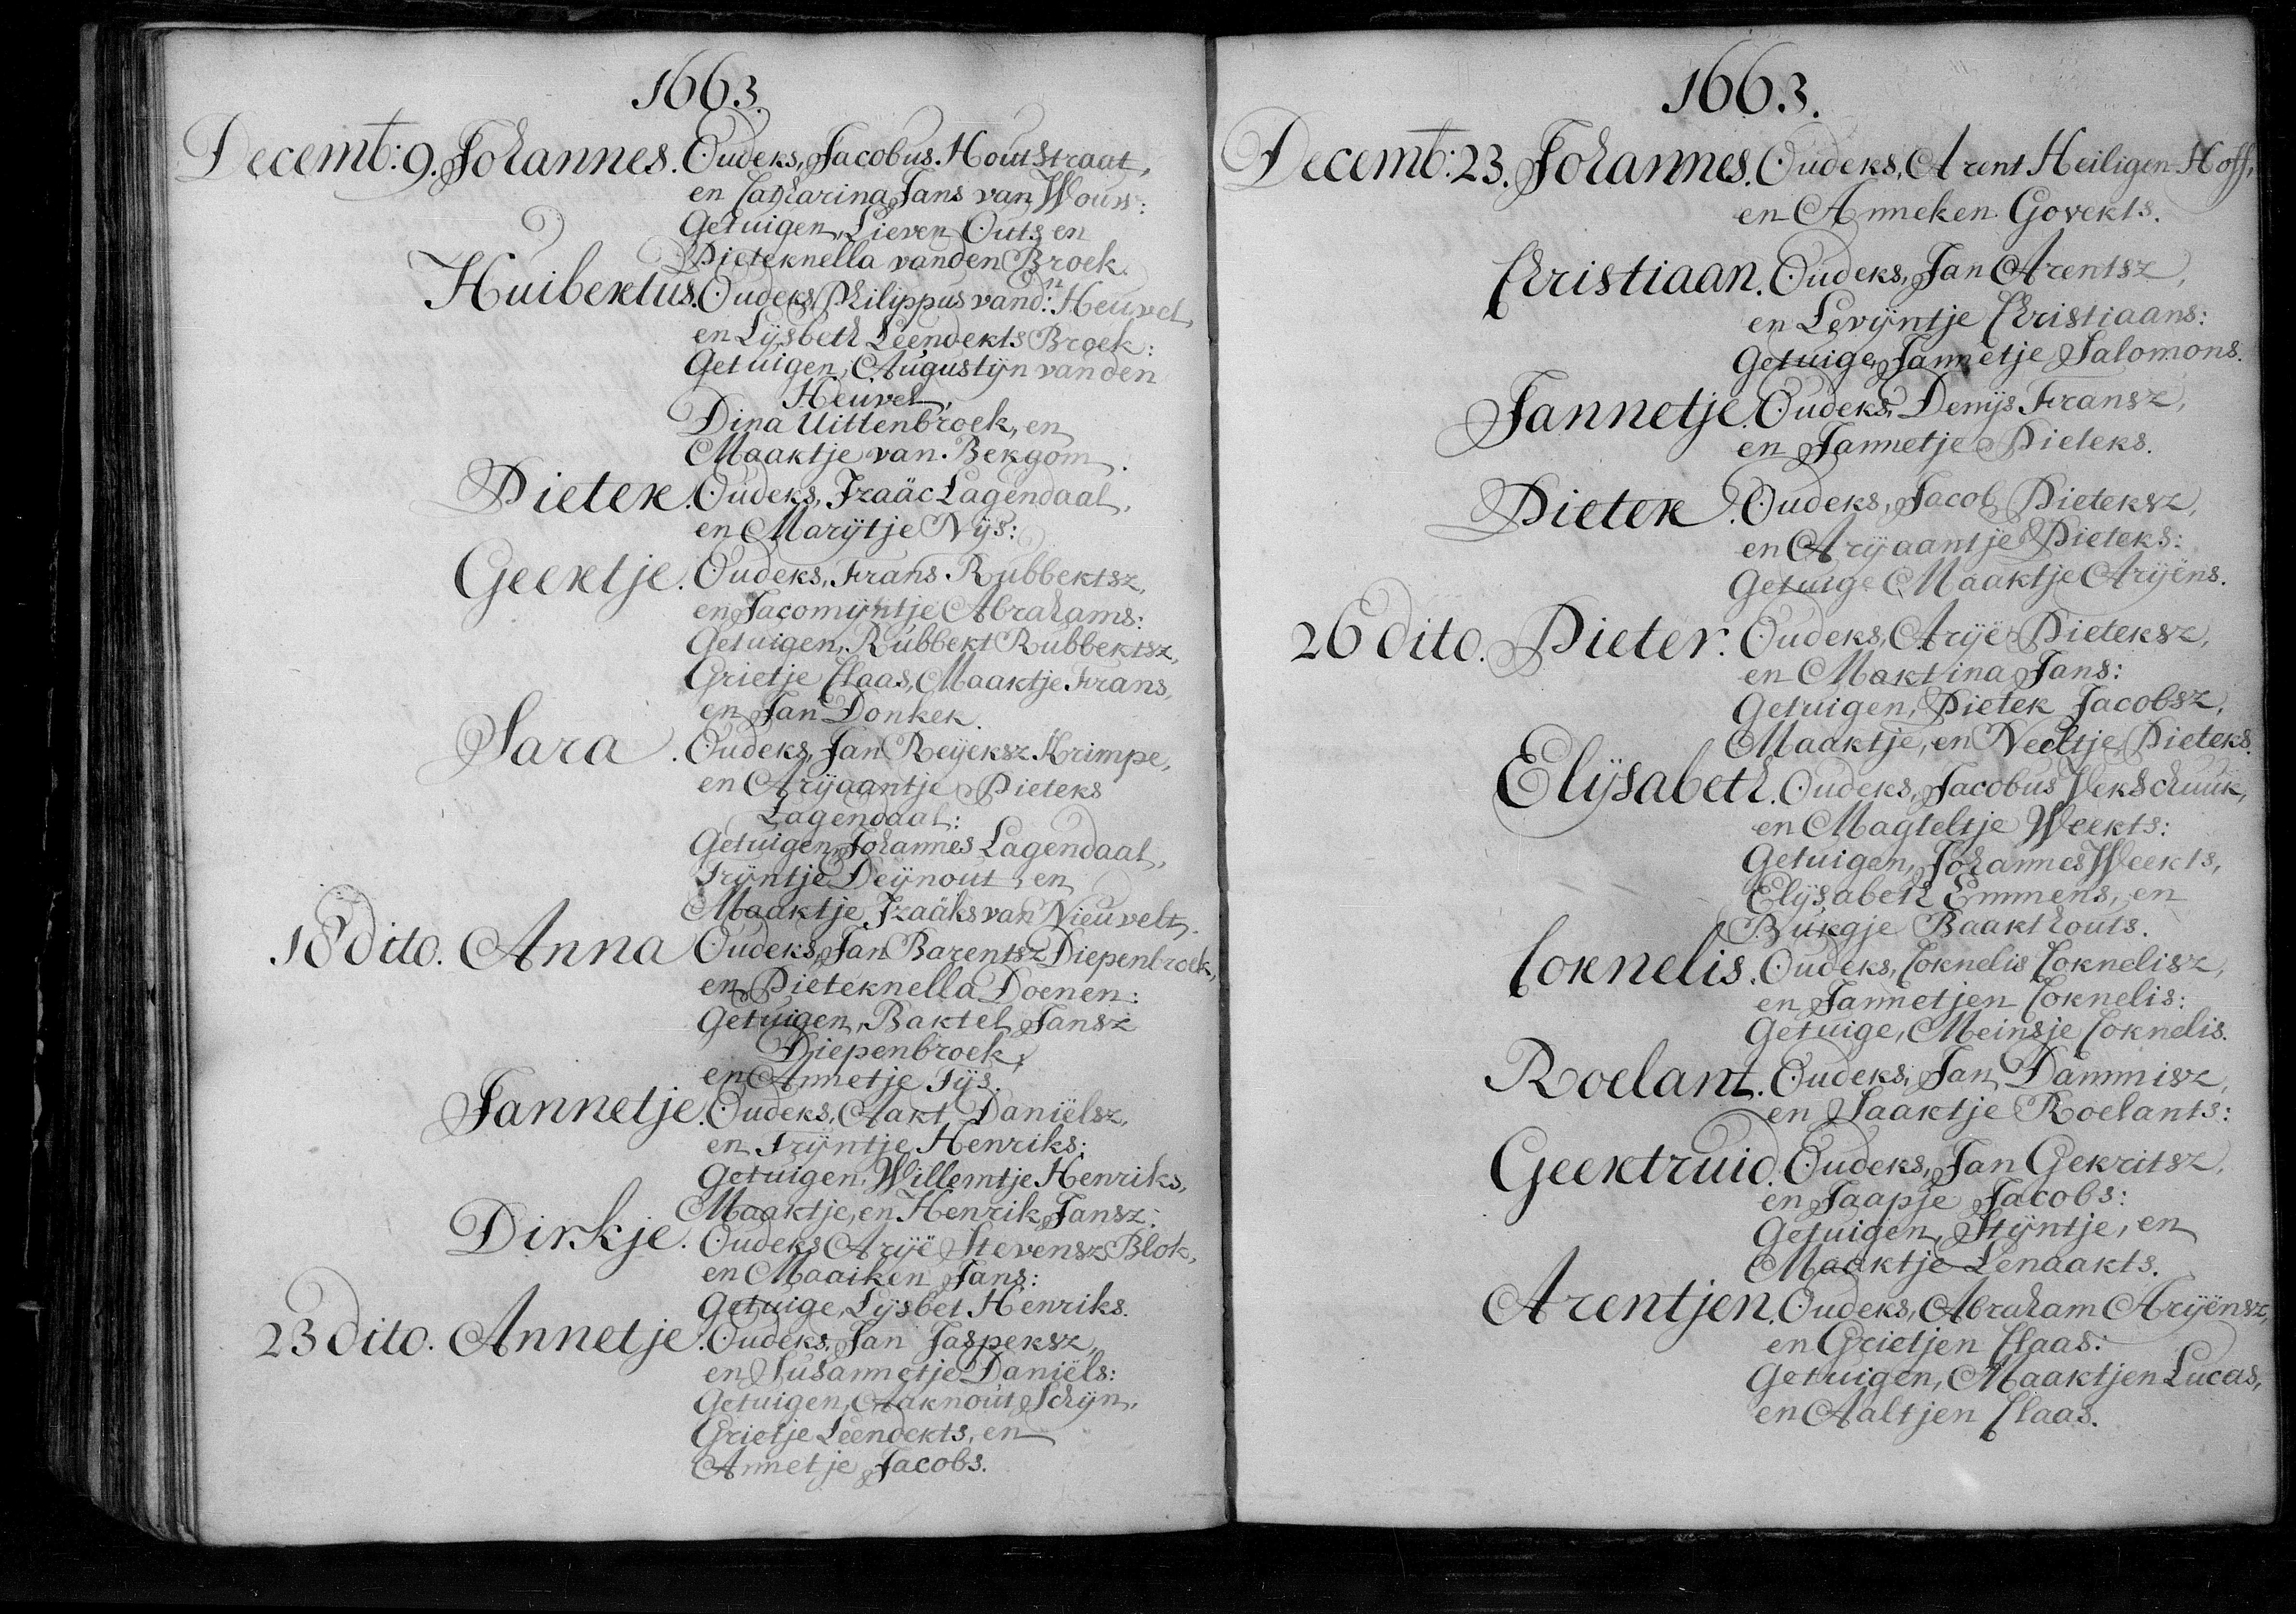 1663.
Decemb: 9. Johannes. Ouders, Jacobus Houtstraat,
en Catharina Jans van Wouw:
Getuigen, Lieven Outs en
Pieternella vanden Broek.
Huibertus. Ouders, Philippus vand:n Heuvel,
en Lijsbeth Leenderts Broek:
Getuigen, Augustijn vanden
Heuvel,
Dina Uittenbroek, en
Maartje van Bergom.
Pieter. Ouders, Izaäc Lagendaal,
en Marijtje Nijs:
Geertje. Ouders, Frans Rubbertsz,
en Jacomijntje Abrahams:
Getuigen, Rubbert Rubbertsz,
Grietje Claas, Maartje Frans,
en Jan Donker.
Sara. Ouders, Jan Reijersz Krimpe,
en Arijaantje Pieters
Lagendaal:
Getuigen, Johannes Lagendaal,
Trijntje Deijnout, en
Maartje Izaäks van Nieuvelt.
18 dito. Anna Ouders, Jan Barentsz Diepenbroek,
en Pieternella Doenen:
Getuigen, Bartel Jansz
Diepenbroek,
en Annetje Tijs.
Jannetje. Ouders, Aart Daniëlsz,
en Trijntje Henriks:
Getuigen, Willemtje Henriks,
Maartje, en Henrik Jansz.
Dirkje. Ouders, Arijë Stevensz Blok,
en Maaiken Jans:
Getuige, Lijsbet Henriks.
23 dito. Annetje. Ouders, Jan Jaspersz,
en Susannetje Daniëls:
Getuigen, Aarnout Schijn,
Grietje Leenderts, en
Annetje Jacobs.
1663.
Decemb: 23. Johannes. Ouders, Arent Heiligen Hoff,
en Anneken Goverts.
Christiaan. Ouders, Jan Arentsz,
en Levijntje Christiaans:
Getuige, Jannetje Salomons.
Jannetje. Ouders, Denijs Fransz,
en Jannetje Pieters.
Pieter. Ouders, Jacob Pietersz,
en Arijaantje Pieters:
Getuige Maartje Arijëns.
26 dito. Pieter. Ouders, Arijë Pietersz,
en Martina Jans:
Getuigen, Pieter Jacobsz,
Maartje, en Neeltje Pieters.
Elijsabeth. Ouders, Jacobus Verschuur,
en Magteltje Weerts:
Getuigen, Johannes Weerts,
Elijsabeth Emmens, en
Burgje Baarthouts.
Cornelis. Ouders, Cornelis Cornelisz,
en Jannetjen Cornelis:
Getuige, Meinsje Cornelis.
Roelant. Ouders, Jan Dammisz,
en Saartje Roelants:
Geertruid. Ouders, Jan Gerritsz,
en Jaapje Jacobs:
Getuigen, Stijntje, en
Maartje Lenaarts.
Arentjen. Ouders, Abraham Arijënsz,
en Grietjen Claas:
Getuigen, Maartjen Lucas,
en Aaltjen Claas.